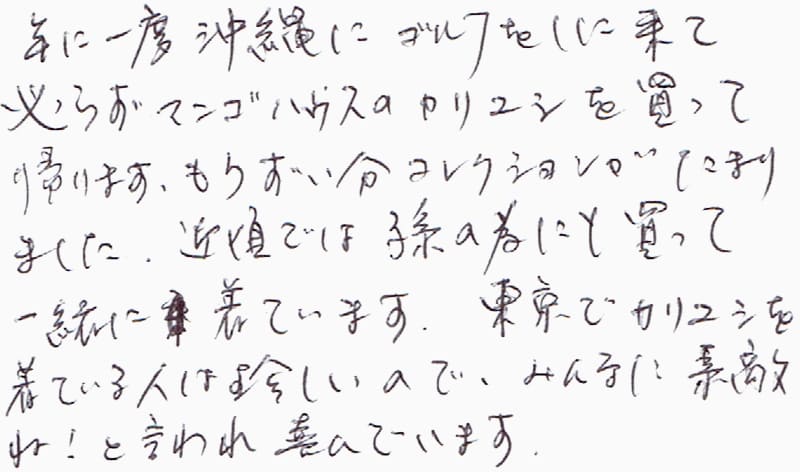 年に一度沖縄にゴルフをしに来て
必らずマンゴハウスのカリユシを買って
帰ります、もうずい分コレクションがたまり
ました。近頃では孫の為にも買って
一緒に着ています。東京でカリユシを
着ている人は珍しいので、みんなに素敵
ね！と言われ喜んでいます。